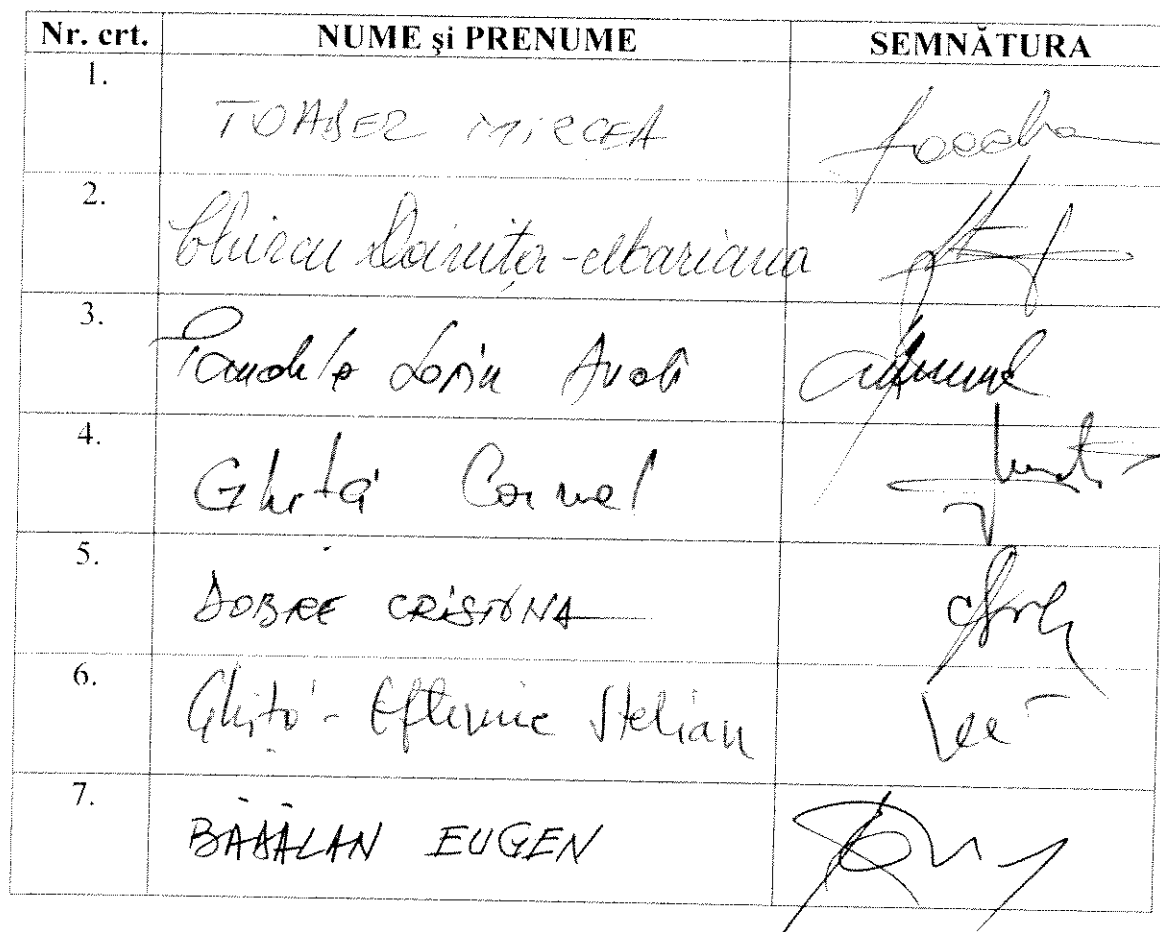 Nr. crt. NUME şi PRENUME SEMNĂTURA
1. TOADER MIRCEA
2. Chircu Doinița-Mariana
3. Pandele Sorin
4. Ghiță Cornel
5. DOBRE CRISTINA
6. Ghiță - Eftimie Stelian
7. BĂBĂLAN EUGEN